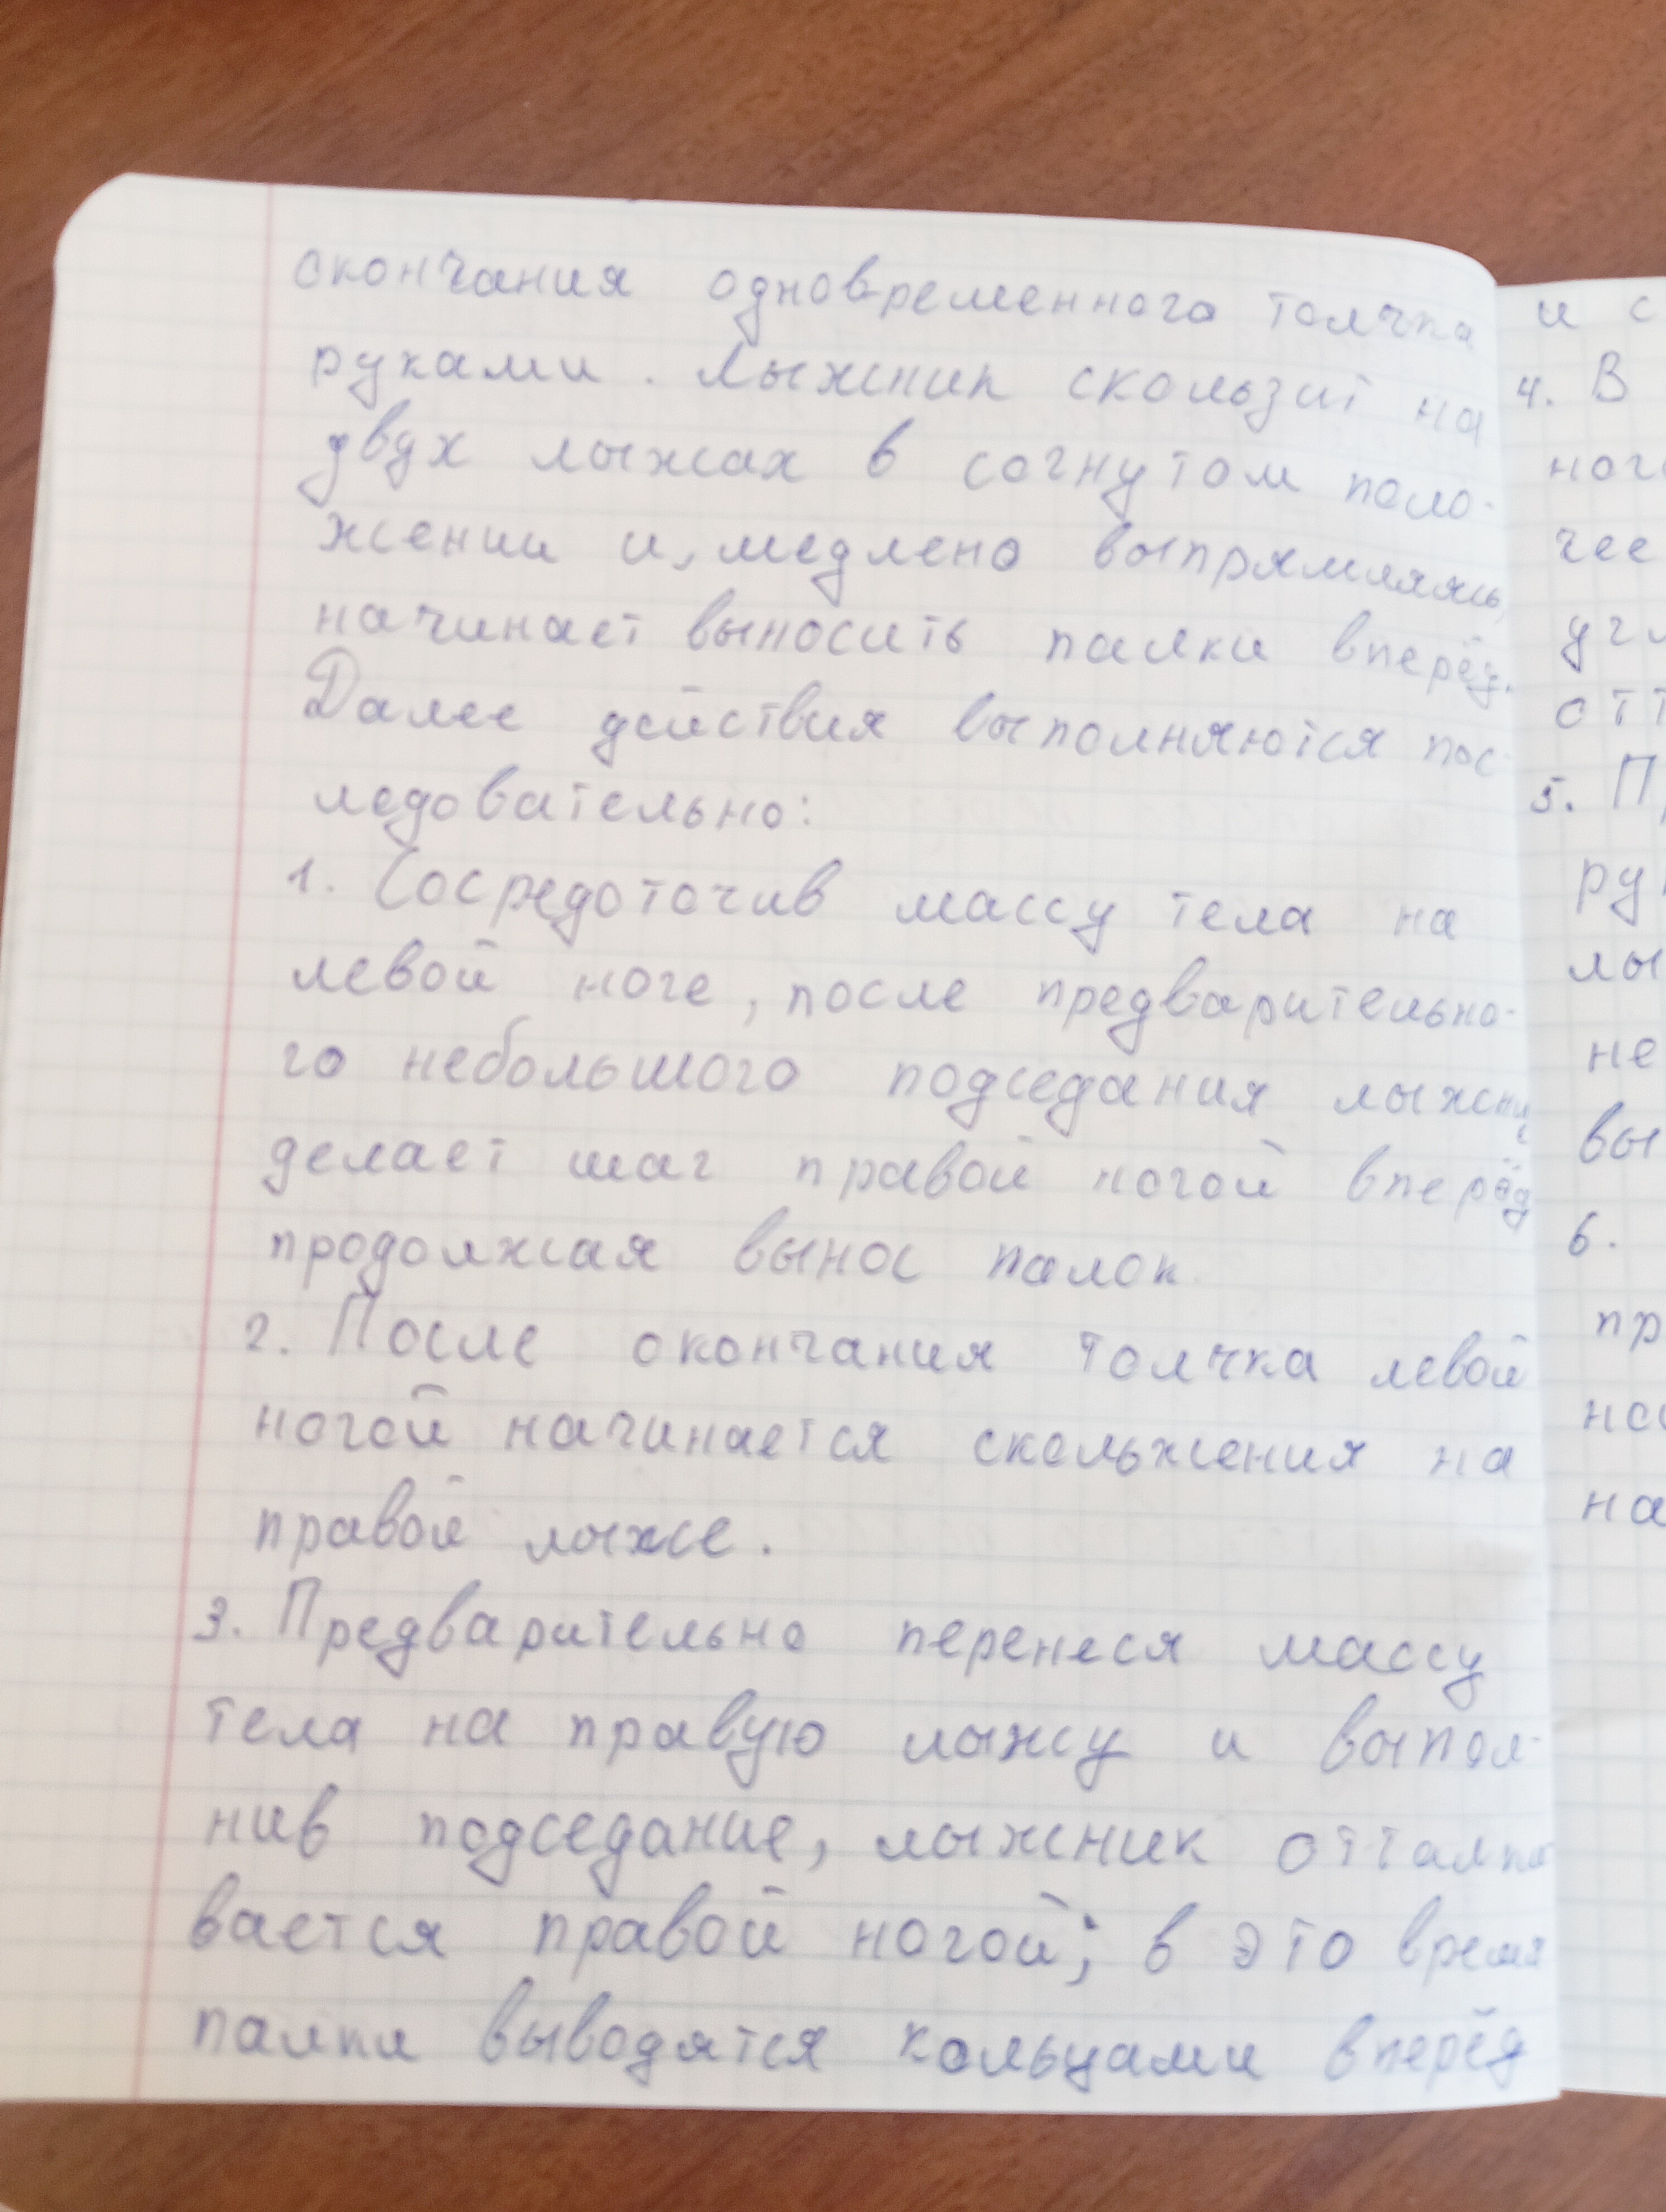 окончания одновременного толчка
руками. Лыжник скользит на
двух лыжах в согнутом поло-
жении и, медлено выпрямляясь,
начинает выносить палки вперёд.
Далее действия выполняются пос-
ледовательно:
1. Сосредоточив массу тела на
левой ноге, после предварительно-
го небольшого подседания
делает шаг правой ногой вперёд
продолжая вынос палок.
2. После окончания толчка левой
ногой начинается скольжения на
правой лыже.
3. Предварительно перенеся массу
тела на правую лыжу и выпол-
нив подседание, лыжник отталки
вается правой ногой; в это время
палки выводятся кольцами вперёд
и с
4. В
ног
чее
угл
отт
5. П
рук
лы
не
вы
6.
пр
на